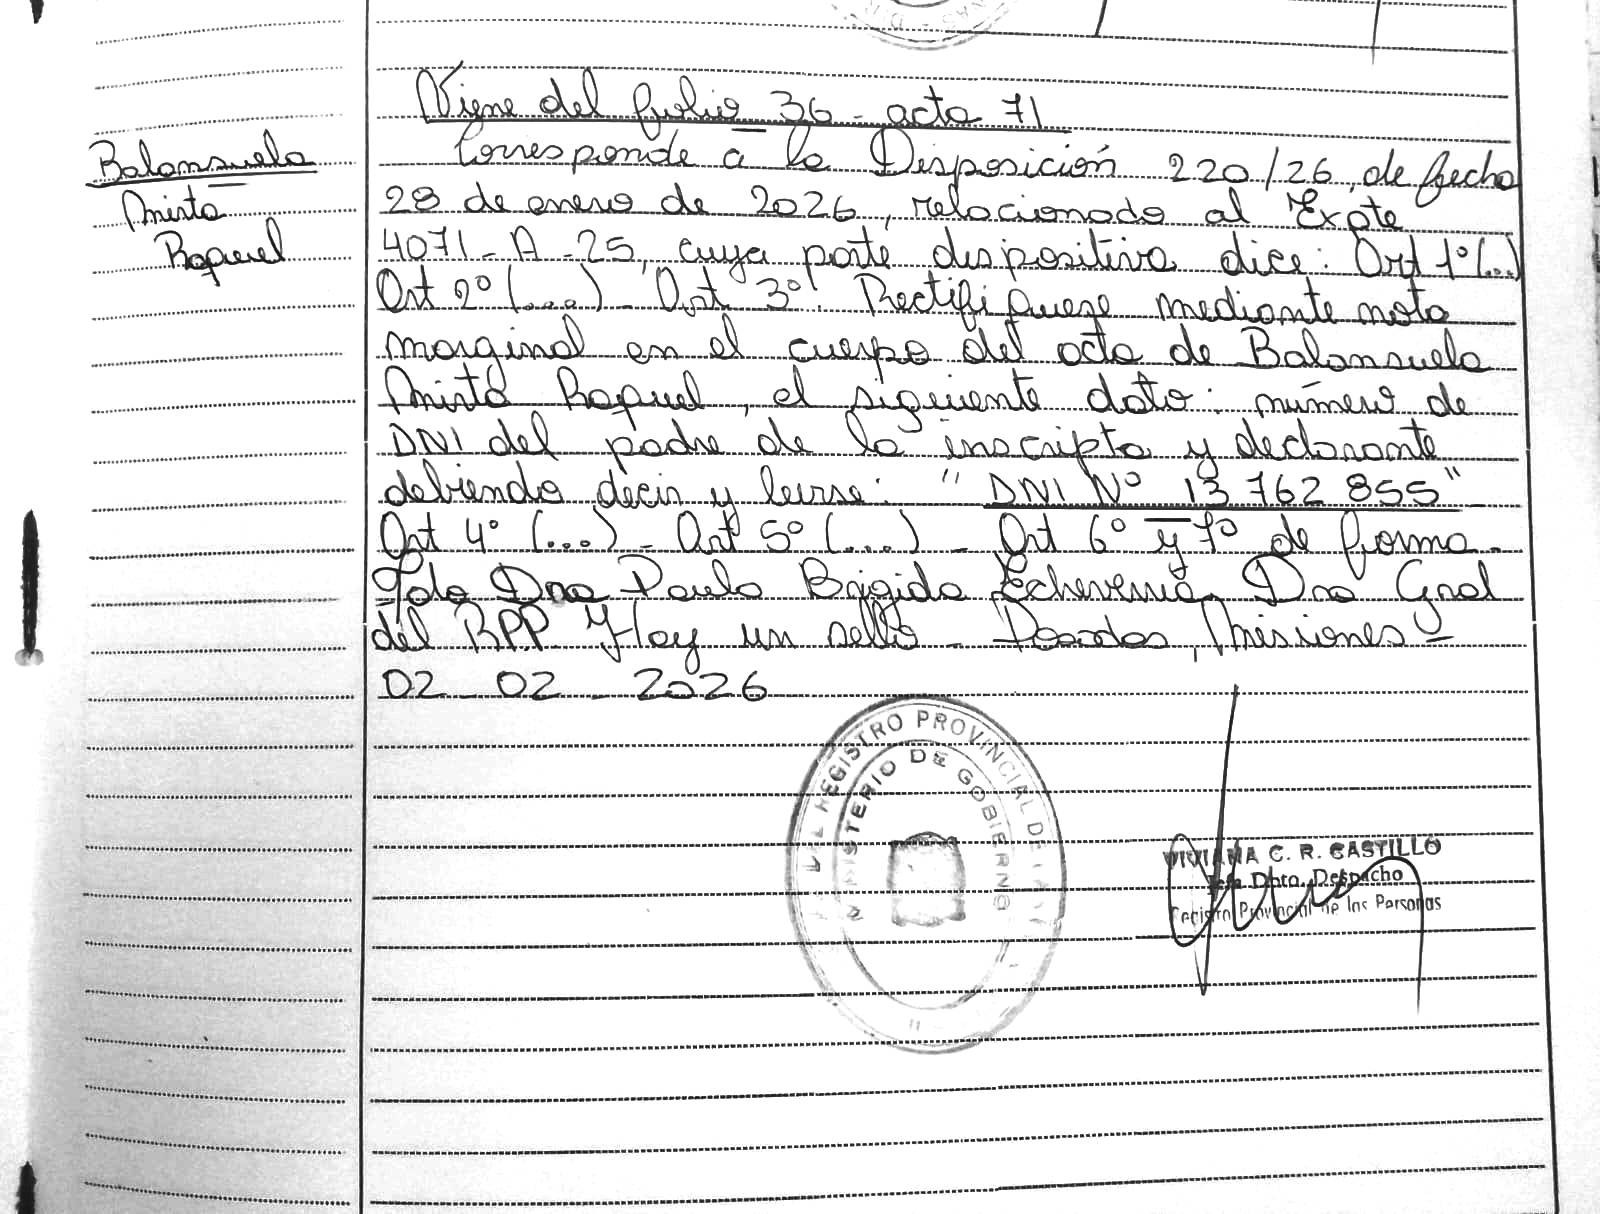 Viene del folio 36 - acta 71
Balansuela
Mirta
Raquel
Corresponde a la Disposición 220/26, de fecha
28 de enero de 2026, relacionado al Expte
4071 - A - 25, cuya parte dispositiva dice: Art 1º (...)
Art 2º (...) - Art 3º: Rectifiquese mediante nota
marginal en el cuerpo del acta de Balansuela
Mirta Raquel, el siguiente dato: número de
DNI del padre de la inscripta y declarante
debiendo decir y leerse: "DNI Nº 13 762 855"
Art 4º (...) - Art 5º (...) - Art 6º y 7º de forma -
Fdo Dra Paula Brigida Echeverria, Dra Gral
del RPP. Hay un sello - Posadas, Misiones -
02 - 02 - 2026
REGISTRO PROVINCIAL DE LAS
MINISTERIO DE GOBIERNO
VIVIANA C. R. CASTILLO
Jefa Dpto. Despacho
Registro Provincial de las Personas